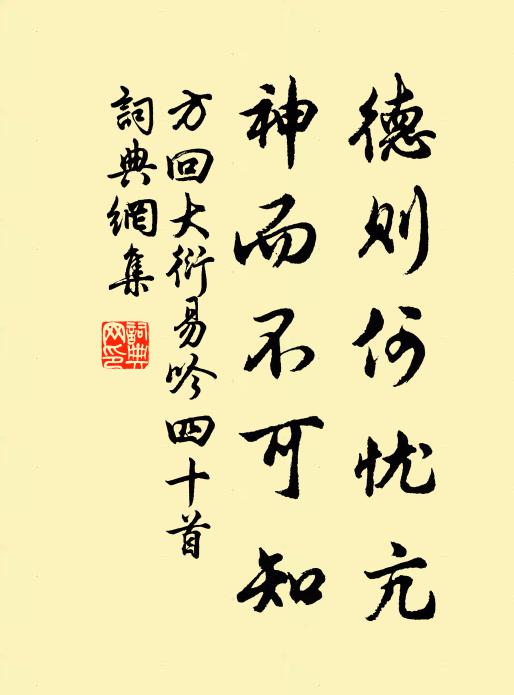 德则何忧亢
神而不可知
方回大衍易吟四十首
詞典網集
詞典網印